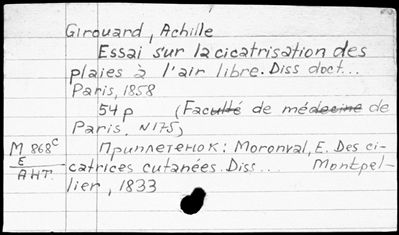 Girouard, Achille
Essai sur la cicatrisation des
plaies à l'air libre. Diss doct...
Paris, 1858
54 p (Faculté de médecine de
Paris, N175)
M 868c Приплетенок: Moronval, E. Des ci-
E
АНТ. catrices cutanées. Diss... Montpel-
lier, 1833